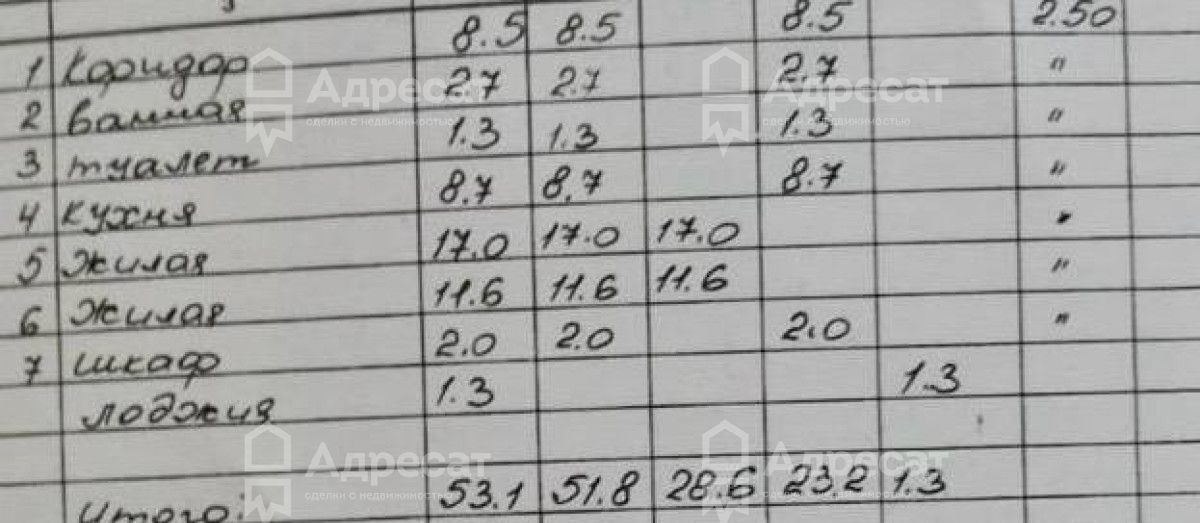 1 Коридор 8.5 8.5 8.5 2.50
2 Ванная 2.7 2.7 2.7 "
3 туалет 1.3 1.3 1.3 "
4 кухня 8.7 8.7 8.7 "
5 жилая 17.0 17.0 17.0 "
6 жилая 11.6 11.6 11.6 "
7 шкаф 2.0 2.0 2.0 "
лоджия 1.3 1.3
Итого: 53.1 51.8 28.6 23.2 1.3
Адресат
сделки с недвижимостью
Адресат
сделки с недвижимостью
Адресат
сделки с недвижимостью
Адресат
сделки с недвижимостью